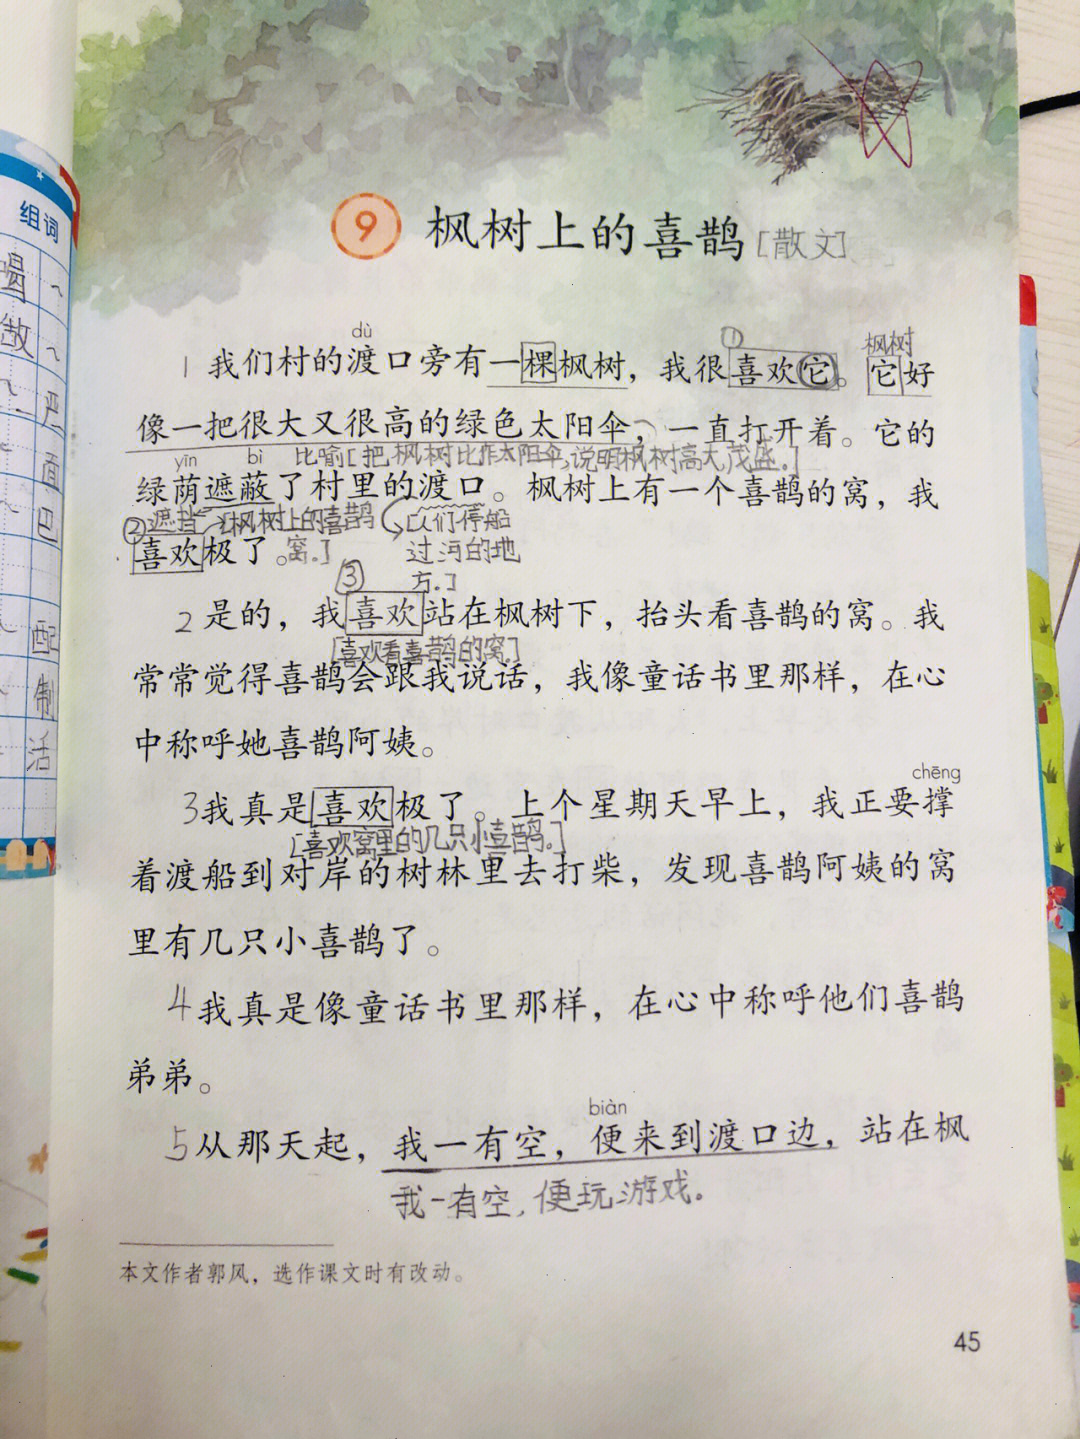 组词
喝
做
严
面
巴
配
制
活
9 枫树上的喜鹊 [散文]
dù
① 枫树
1 我们村的渡口旁有一棵枫树，我很喜欢它。它好
像一把很大又很高的绿色太阳伞，一直打开着。它的
比喻[把枫树比作太阳伞，说明枫树高大茂盛。]
yīn bì
绿荫遮蔽了村里的渡口。枫树上有一个喜鹊的窝，我
②遮挡 [枫树上的喜鹊 [人们停船
喜欢极了。窝。] 过河的地
③ 方。]
2 是的，我喜欢站在枫树下，抬头看喜鹊的窝。我
[喜欢看喜鹊的窝。]
常常觉得喜鹊会跟我说话，我像童话书里那样，在心
中称呼她喜鹊阿姨。
chēng
3 我真是喜欢极了。上个星期天早上，我正要撑
[喜欢窝里的几只小喜鹊。]
着渡船到对岸的树林里去打柴，发现喜鹊阿姨的窝
里有几只小喜鹊了。
4 我真是像童话书里那样，在心中称呼他们喜鹊
弟弟。
biàn
5 从那天起，我一有空，便来到渡口边，站在枫
我一有空，便玩游戏。
本文作者郭风，选作课文时有改动。
45